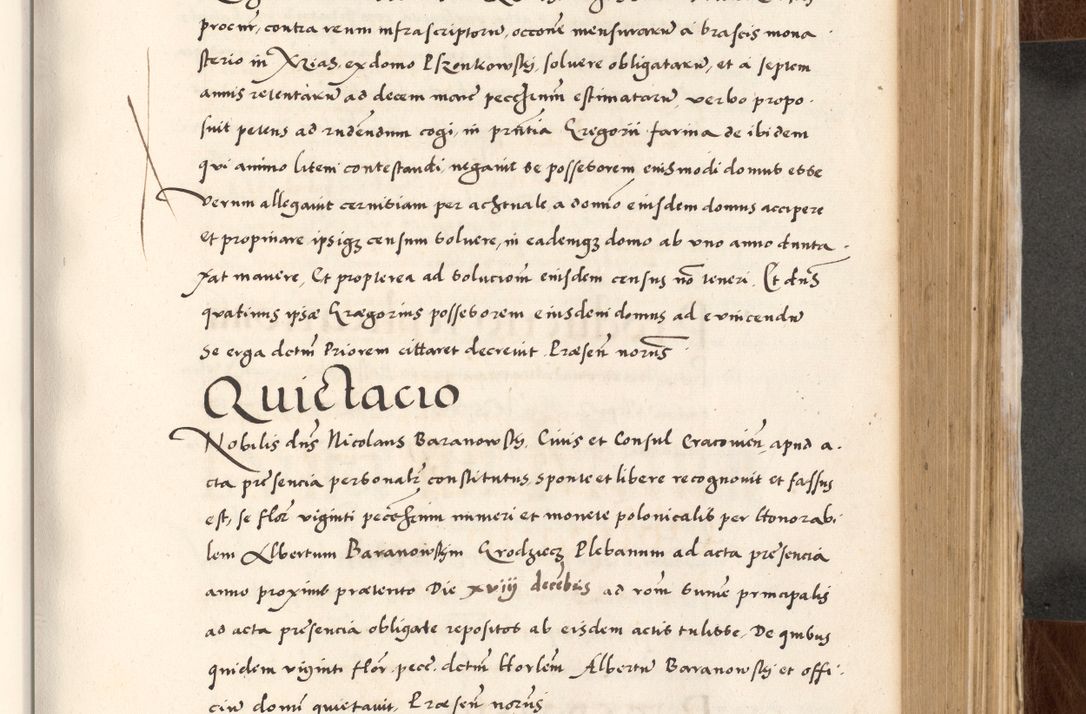 procur, contra reum infrascriptoru, occone mensuraru a brascis mona
sterio in Xrias, ex domo Pszonkowski, soluere obligataru, et a septem
annis retentaru ad decem marc pecchnm estimataru, verbo propo
suit petens ad rndendum cogi, in pntia Gregorii farina de ibidem
qui animo litem contestandi, negauit se possessorem eiusmodi domus esse
Verum allegauit ceruisiam per achtuale a domo eiusdem domus accipere
et propinare ipsiq censum soluere, in eademq domo ab vno anno dunta
xat manere, Et propterea ad solucionem eiusdem census no teneri. Et dns
quatinus ipse Gregorius possessorem eiusdem domus ad euincendu
se erga dctm Priorem cittaret decreuit Præsen norus
Quictacio
Nobilis dns Nicolaus Baranowski, Ciuis et Consul Cracouien, apud a
cta presencia personalr constitutus, sponte et libere recognouit et fassus
est, se flor viginti pecchnm numeri et monete polonicalis per Honorabi
lem Albertum Baranowskim Grodziecz Plebanum ad acta presencia
anno proxime præterito Die xviij decebris ad rom summe principalis
ad acta presencia obligate repositos ab eisdem actis tulisse, De quibus
quidem viginti flor pecc. dctm Horlem Albertu Baranowski et offi
ciu domi quietauit, Præsen norus